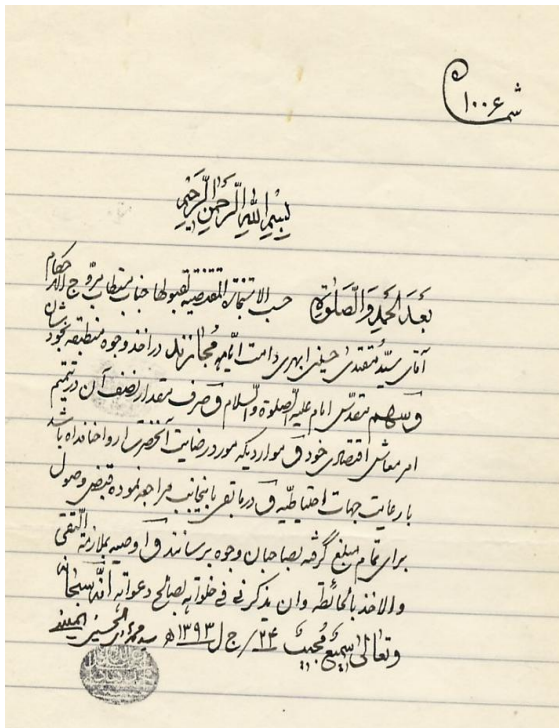 شماره ۱۰۰۶
بِسْمِ اللهِ الرَّحْمنِ الرَّحِيمِ
بَعْدَ الحَمْدِ وَالصَّلوة حسب الاستجازة المقتضیة لقبولها جناب مستطاب مروّج الاحکام
آقای سیّد مقتدیٰ حسینی ابهری دامت ایّامه مُجازند در اخذ وجوه منطبقه بخود شان
و سهم مقدّس امام علیه الصّلوة والسّلام و صرف مقدار نصف آن در تتمیم
امر معاش اقتصادی خود و موارد دیگه مورد رضایت آنحضرت ارواحنا فداه باشد
با رعایت جهات احتیاطیّه و در باقی باینجانب مراجعه نموده قبض وصول
برای تمام مبلغ گرفته بصاحبان وجوه برسانند و اوصیه بملازمة التقی
والاخذ بالحائطة وان یذکرنی فی خلواته بصالح دعواته انّه سبحانه
وتعالیٰ سمیع مُجیب ۲۴ / ج ل ۱۳۹۳ ه